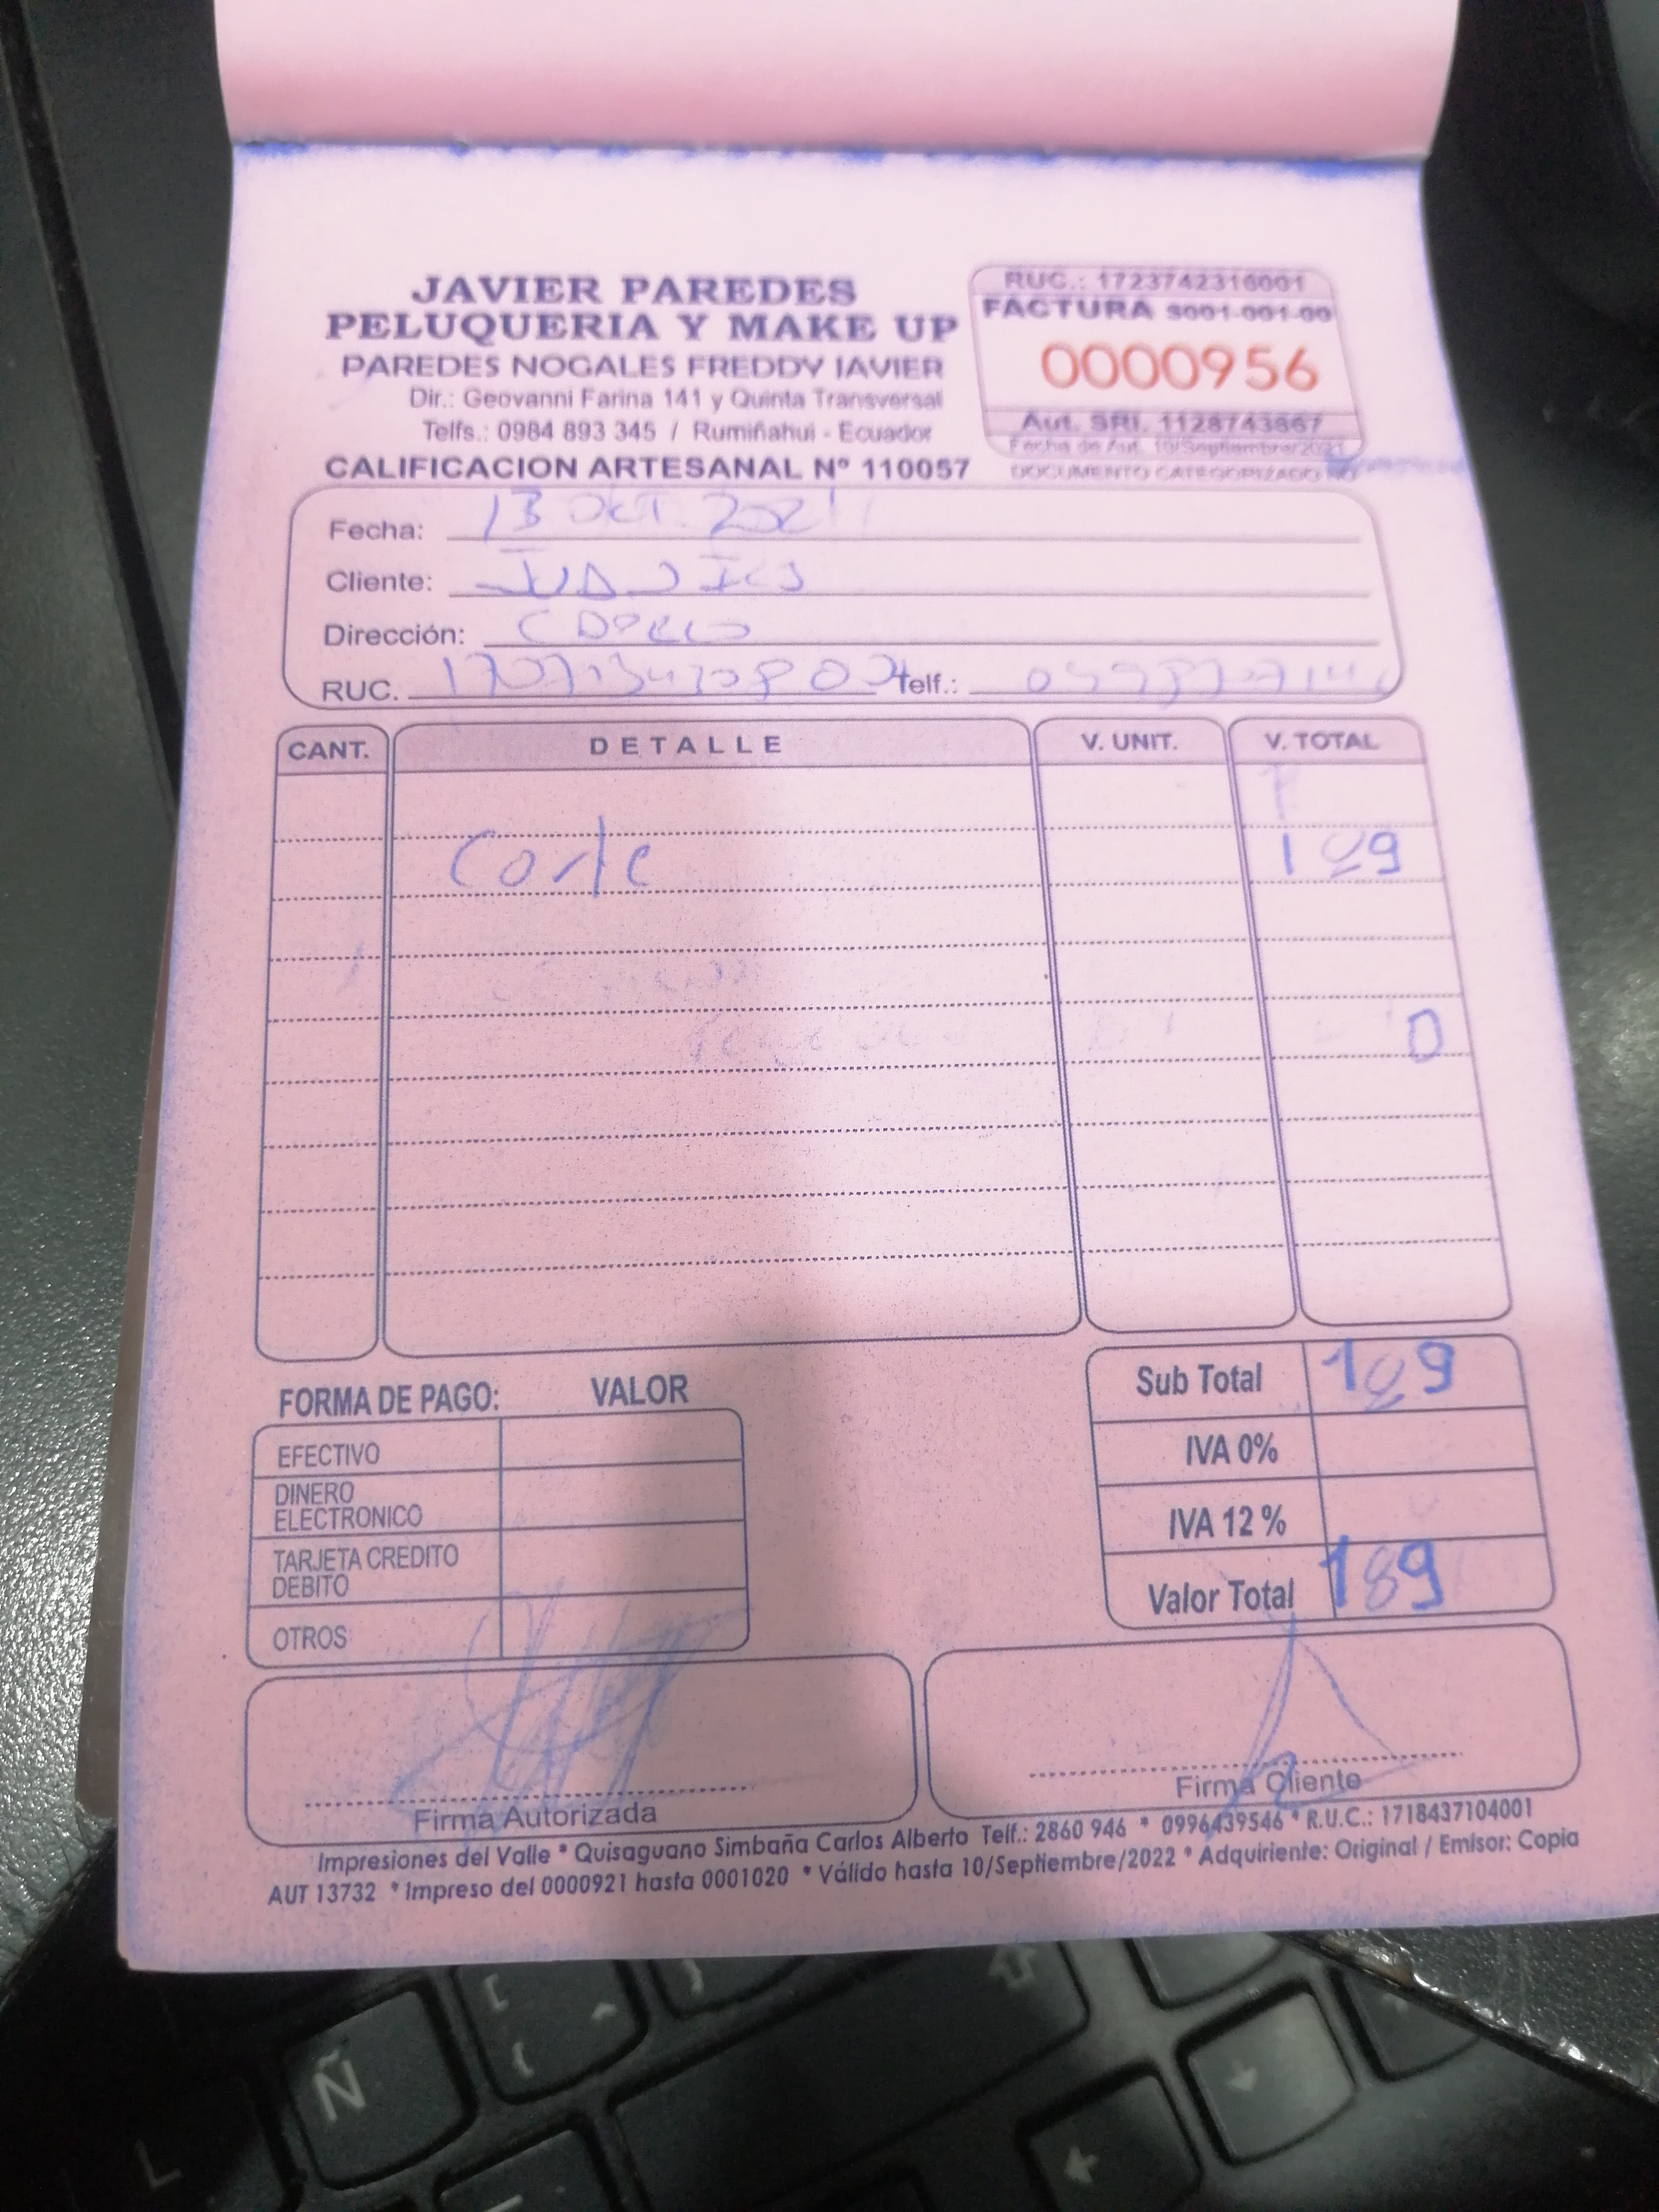 JAVIER PAREDES
PELUQUERIA Y MAKE UP
PAREDES NOGALES FREDDY JAVIER
Dir.: Geovanni Farina 141 y Quinta Transversal
Telfs.: 0984 893 345 / Rumiñahui - Ecuador
CALIFICACION ARTESANAL Nº 110057
RUC.: 1723742316001
FACTURA S001-001-00
0000956
Aut. SRI. 1128743867
Fecha de Aut. 10/Septiembre/2021
DOCUMENTO CATEGORIZADO NO
Fecha: 13 OCT. 2021
Cliente:
Dirección:
RUC. Telf.:
CANT. DETALLE V. UNIT. V. TOTAL
Corte 189
0
FORMA DE PAGO: VALOR
EFECTIVO
DINERO ELECTRONICO
TARJETA CREDITO DEBITO
OTROS
Sub Total 189
IVA 0%
IVA 12 %
Valor Total 189
Firma Autorizada
Firma Cliente
Impresiones del Valle * Quisaguano Simbaña Carlos Alberto Telf.: 2860 946 * 0996439546 * R.U.C.: 1718437104001
AUT 13732 * Impreso del 0000921 hasta 0001020 * Válido hasta 10/Septiembre/2022 * Adquiriente: Original / Emisor: Copia
Ñ
L